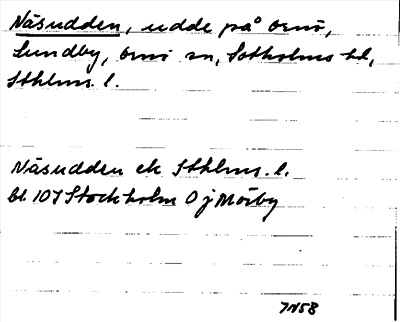 Näsudden, udde på Ornö,
Sundby, Ornö sn, Sotholms hd,
Sthlms. l.
Näsudden ek Sthlms. l.
bl. 10I Stockholm O j Mörby
7N58